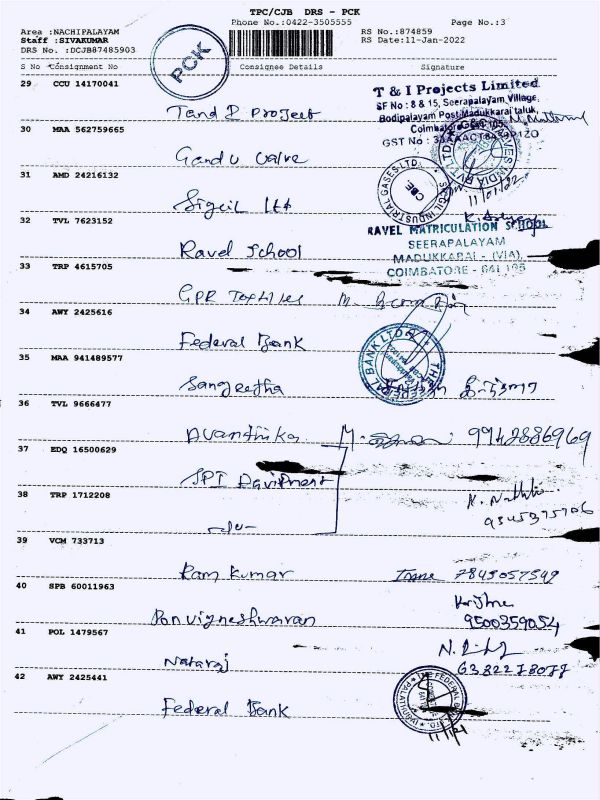 TPC/CJB DRS - PCK
Phone No.:0422-3505555
Page No.:3
Area :NACHIPALAYAM
Staff :SIVAKUMAR
DRS No. :DCJB87485903
RS No.:874859
RS Date:11-Jan-2022
PCK
S No Consignment No Consignee Details Signature
29 CCU 14170041
T and I Project
T & I Projects Limited
SF No : 8 & 15, Seerapalayam Village,
Bodipalayam Post, Madukkarai taluk,
GST No :
30 MAA 562759665
Gandu Valve
31 AMD 24216132
Sigcil Ltd
SICGIL INDUSTRIAL GASES LTD.
CBE
11/01/22
32 TVL 7623152
Ravel School
RAVEL MATRICULATION SCHOOL
SEERAPALAYAM
MADUKKARAI - (VIA),
COIMBATORE - 641 105
33 TRP 4615705
GPR Textiles
34 AWY 2425616
Federal Bank
THE FEDERAL BANK LTD
35 MAA 941489577
Sangeetha
36 TVL 9666477
Avanthika
9942886969
37 EDQ 16500629
JPI
38 TRP 1712208
-do-
9345375706
39 VCM 733713
Ram Kumar
7845057549
40 SPB 60011963
Ponvigneshwaran
9500359054
41 POL 1479567
Nataraj
42 AWY 2425441
Federal Bank